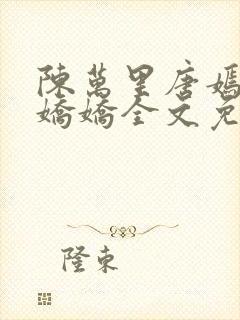 陳萬里唐嫣
嬌嬌全文免
隆東